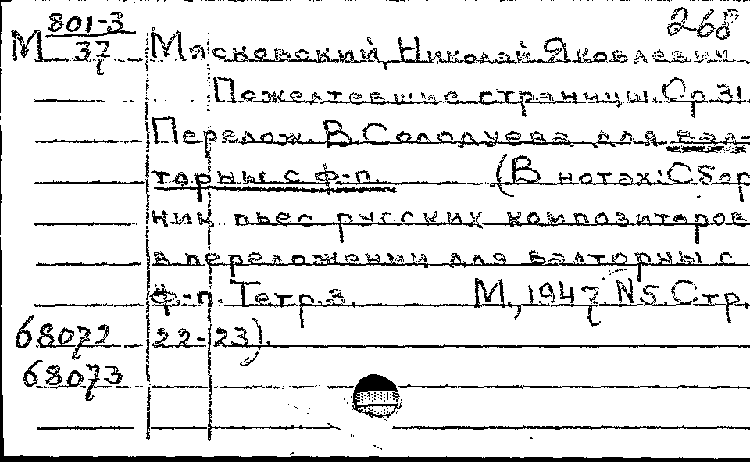 268
М 801-3
37
Мясковский, Николай Яковлевич
Пожелтевшие страницы. Ор. 31.
Перелож. В. Солодуева для вал-
торны с ф-п. (В нотах: Сбор
ник пьес русских композиторов
в переложении для валторны с
ф-п. Тетр. 3. М., 1947 №5. Стр.
68072 22-23).
68073